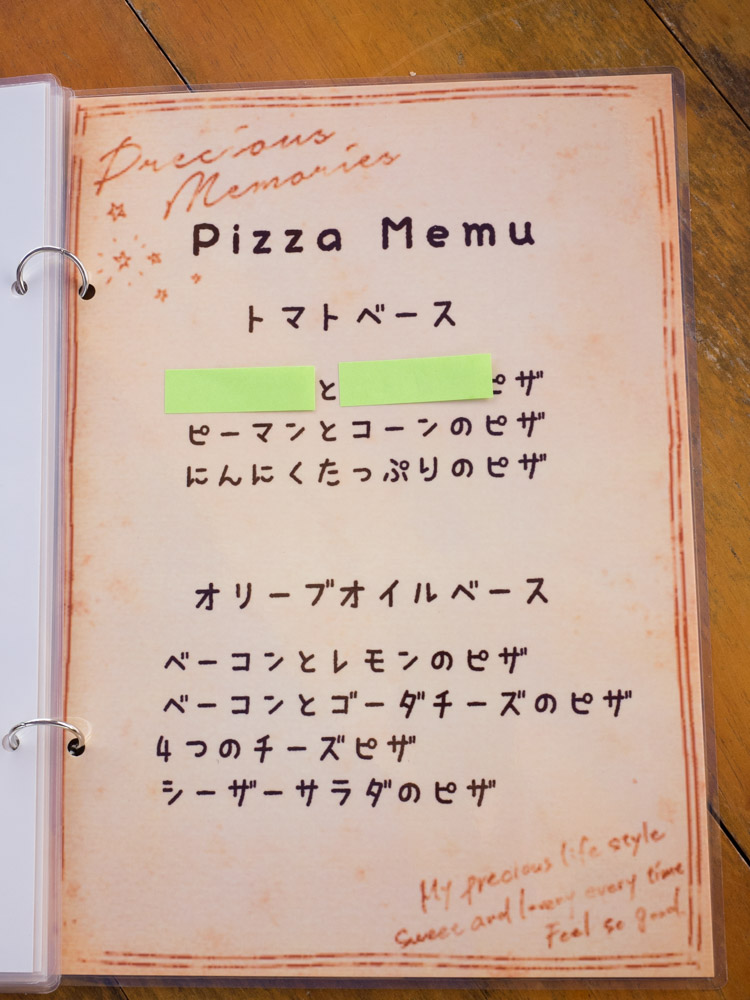 Precious
Memories
Pizza Memu
トマトベース
と ピザ
ピーマンとコーンのピザ
にんにくたっぷりのピザ
オリーブオイルベース
ベーコンとレモンのピザ
ベーコンとゴーダチーズのピザ
4つのチーズピザ
シーザーサラダのピザ
My precious life style
sweet and every time
Feel so good.